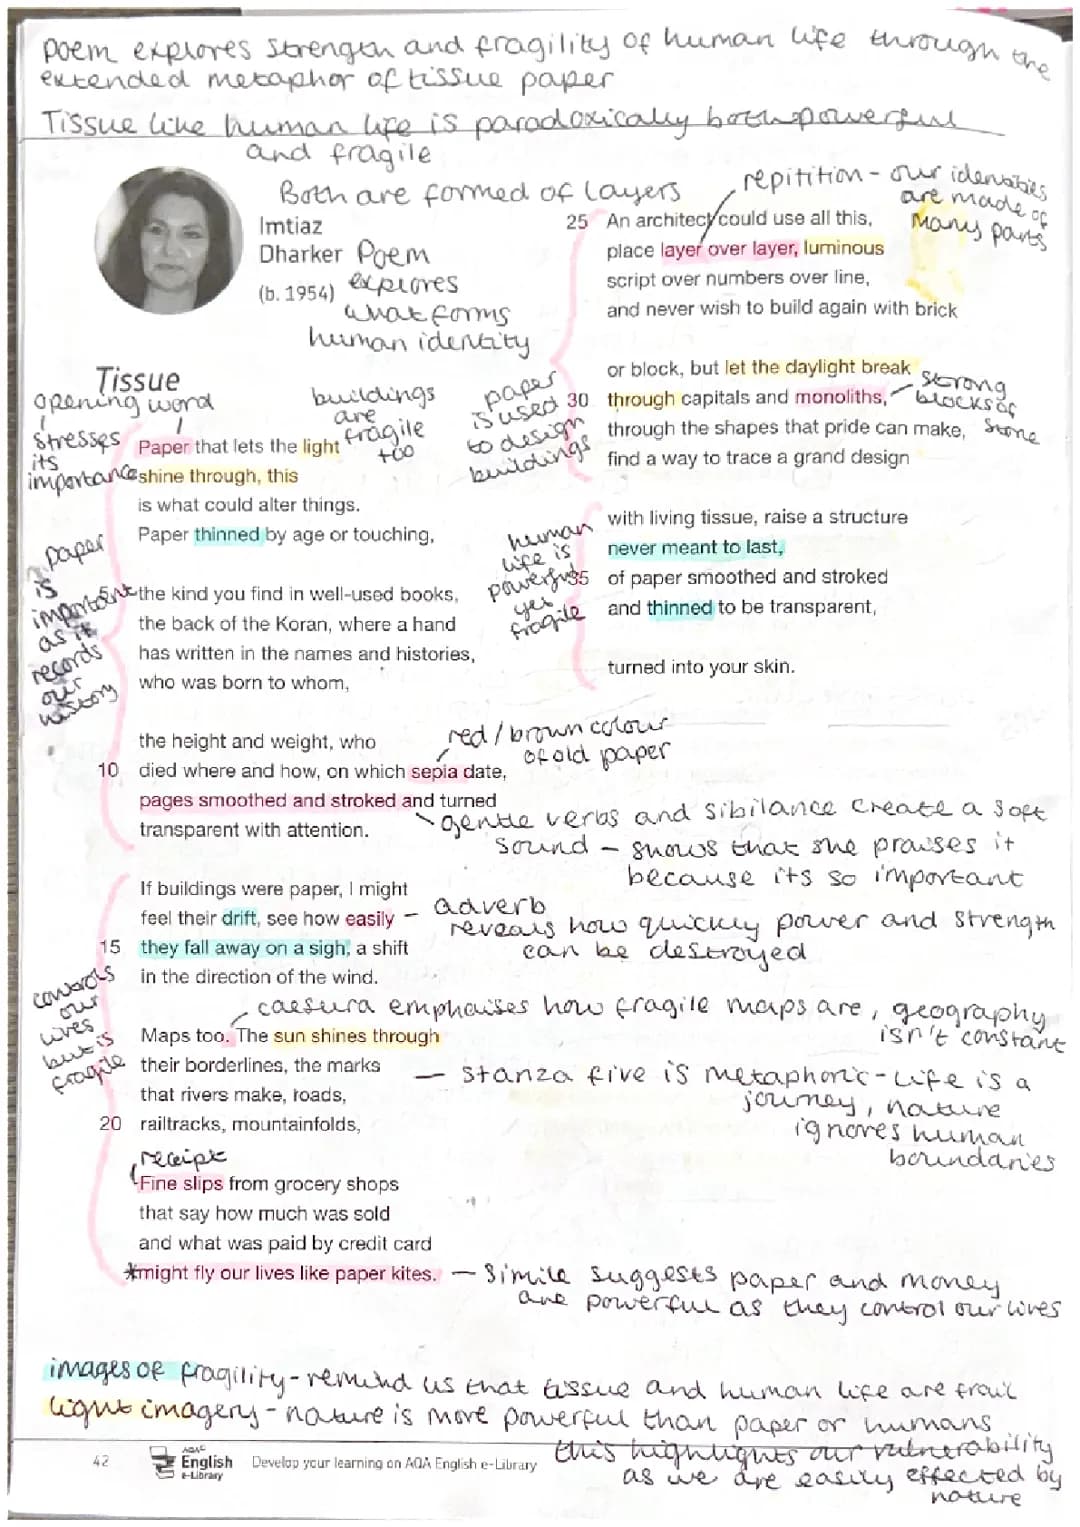 poem explores strength and fragility of human life through the
extended metaphor of tissue paper
Tissue like human life is paradoxically both powerful
and fragile
Both are formed of layers
Imtiaz
Dharker
(b. 1954)
Poem
explores
what forms
human identity
Tissue
opening word
stresses
its
importance
buildings
are
fragile
too
Paper that lets the light
shine through, this
is what could alter things.
Paper thinned by age or touching,
paper
is
important
as it
records
our
history
5 the kind you find in well-used books,
the back of the Koran, where a hand
has written in the names and histories,
who was born to whom,
the height and weight, who
10 died where and how, on which sepia date,
pages smoothed and stroked and turned
transparent with attention.
red / brown colour
of old paper
gentle verbs and sibilance create a soft
sound - shows that she praises it
because its so important
If buildings were paper, I might
feel their drift, see how easily
15 they fall away on a sigh, a shift
in the direction of the wind.
- adverb
reveals how quickly power and strength
can be destroyed
controls
our
lives
but is
fragile
caesura emphaises how fragile maps are, geography
isn't constant
Maps too. The sun shines through
their borderlines, the marks
that rivers make, roads,
20 railtracks, mountainfolds,
- stanza five is metaphoric - life is a
journey, nature
ignores human
boundaries
receipt
Fine slips from grocery shops
that say how much was sold
and what was paid by credit card
*might fly our lives like paper kites.
- simile suggests paper and money
are powerful as they control our lives
repitition - our identities
are made of
many parts
25 An architect could use all this,
place layer over layer, luminous
script over numbers over line,
and never wish to build again with brick
paper
is used
to design
buildings
or block, but let the daylight break
30 through capitals and monoliths,
through the shapes that pride can make,
find a way to trace a grand design
strong
blocks of
stone
human
life is
powerful
yet
fragile
with living tissue, raise a structure
never meant to last,
35 of paper smoothed and stroked
and thinned to be transparent,
turned into your skin.
images of fragility - remind us that tissue and human life are frail
light imagery - nature is more powerful than paper or humans
this highlights our vulnerability
as we are easily effected by
nature
42
AQA
English
e-Library
Develop your learning on AQA English e-Library